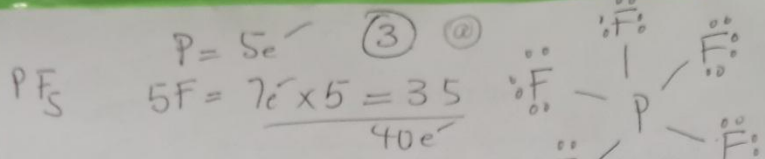 P = 5e⁻ ③ ⓐ
PF₅ 5F = 7e⁻ × 5 = 35
40e⁻
F
F F
P
F